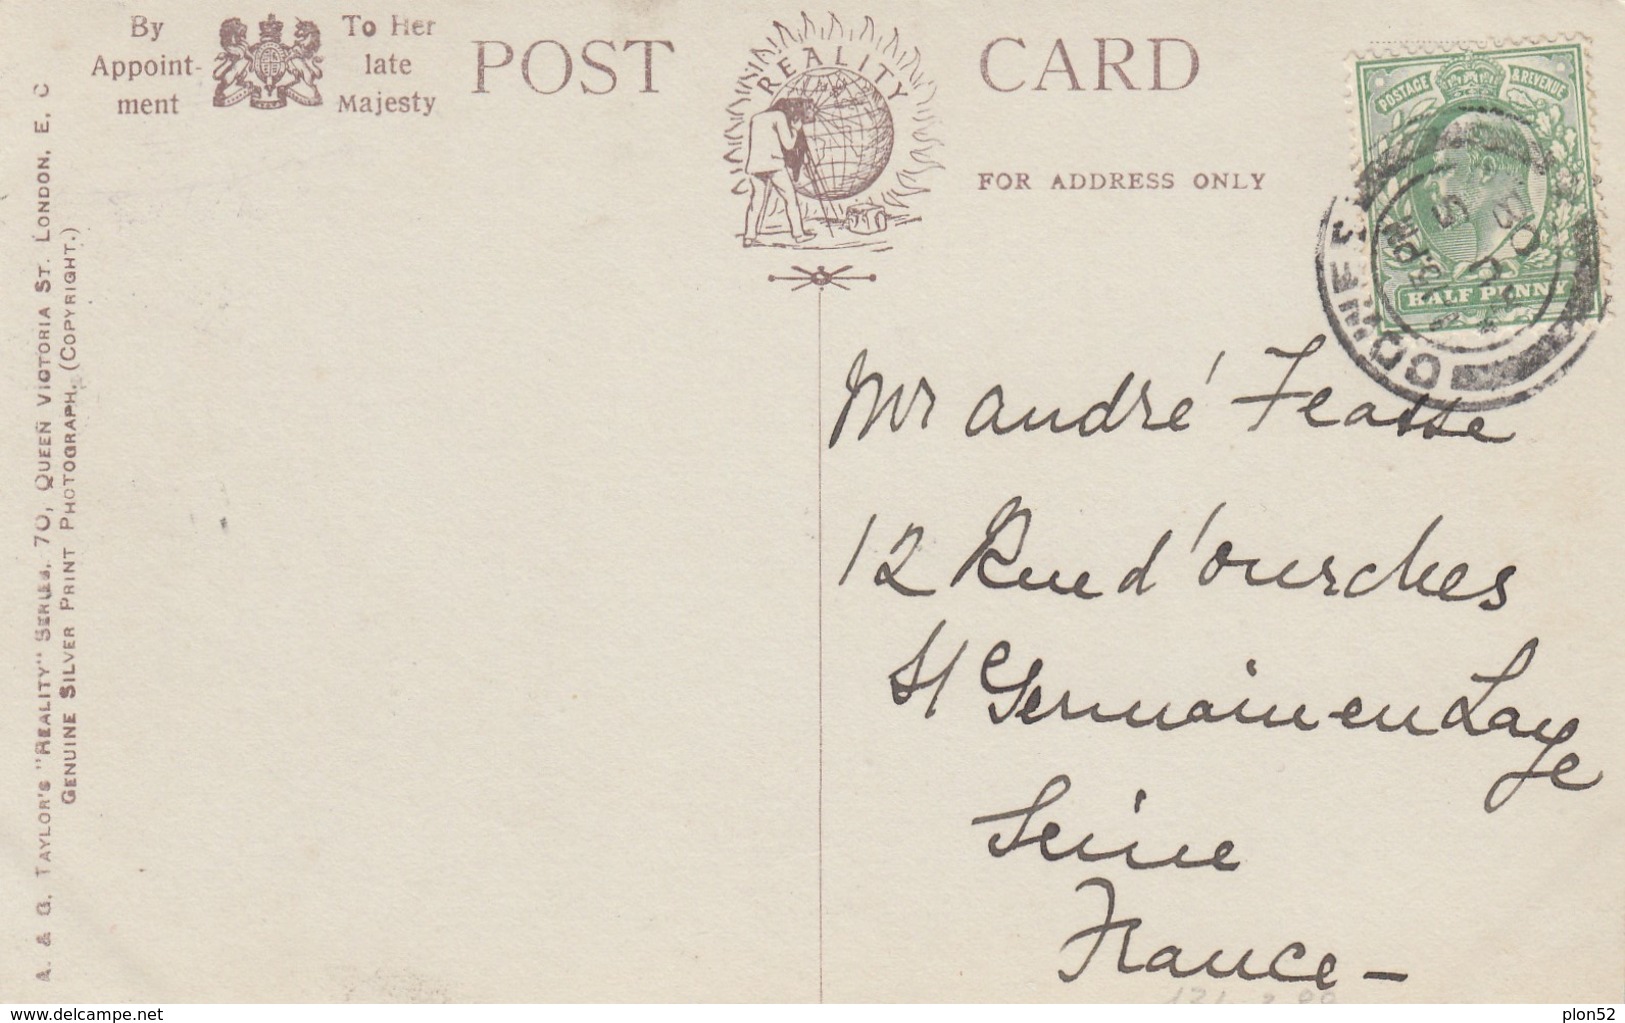 By
Appoint-
ment
To Her
late
Majesty
POST CARD
REALITY
FOR ADDRESS ONLY
POSTAGE & REVENUE
HALF PENNY
A. & G. TAYLOR'S "REALITY" SERIES. 70, QUEEN VICTORIA ST. LONDON, E. C
GENUINE SILVER PRINT PHOTOGRAPH. (COPYRIGHT.)
Mr André Feasse
12 Rue d'ourches
St Germain en Laye
Seine
France -
www.delcampe.net
plon52